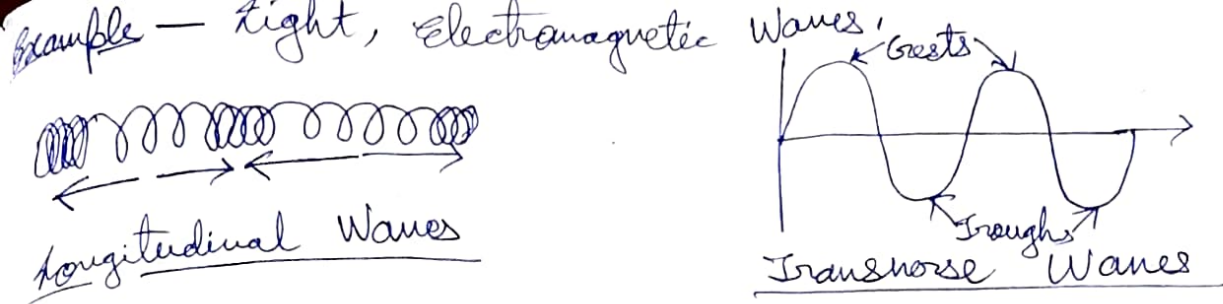 Example — Light, Electromagnetic Waves,
Crests
Troughs
Longitudinal Waves
Transhorse Waves